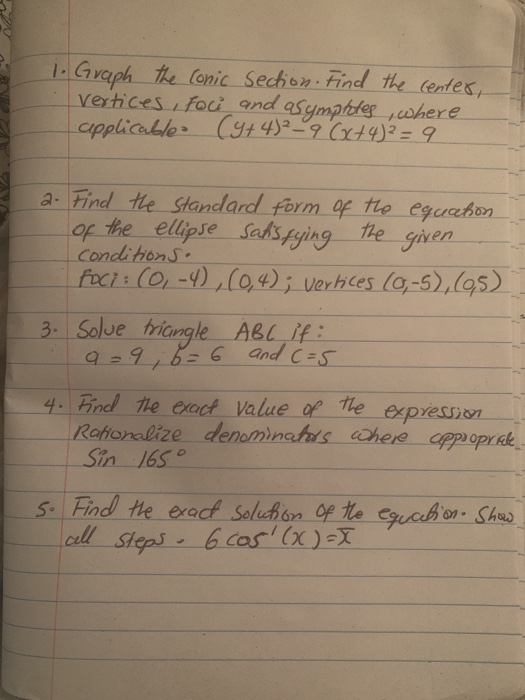 1. Graph the Conic Section. Find the center,
vertices, foci and asymptotes, where
applicable. (y+4)²-9(x+4)²=9
2. Find the standard form of the equation
of the ellipse satisfying the given
conditions.
Foci: (0,-4), (0,4); vertices (0,-5), (0,5)
3. Solve triangle ABC if:
a=9, b=6 and C=5
4. Find the exact value of the expression
Rationalize denominators where appropriate
Sin 165°
5. Find the exact solution of the equation. Show
all steps. 6 cos⁻¹(x)=π